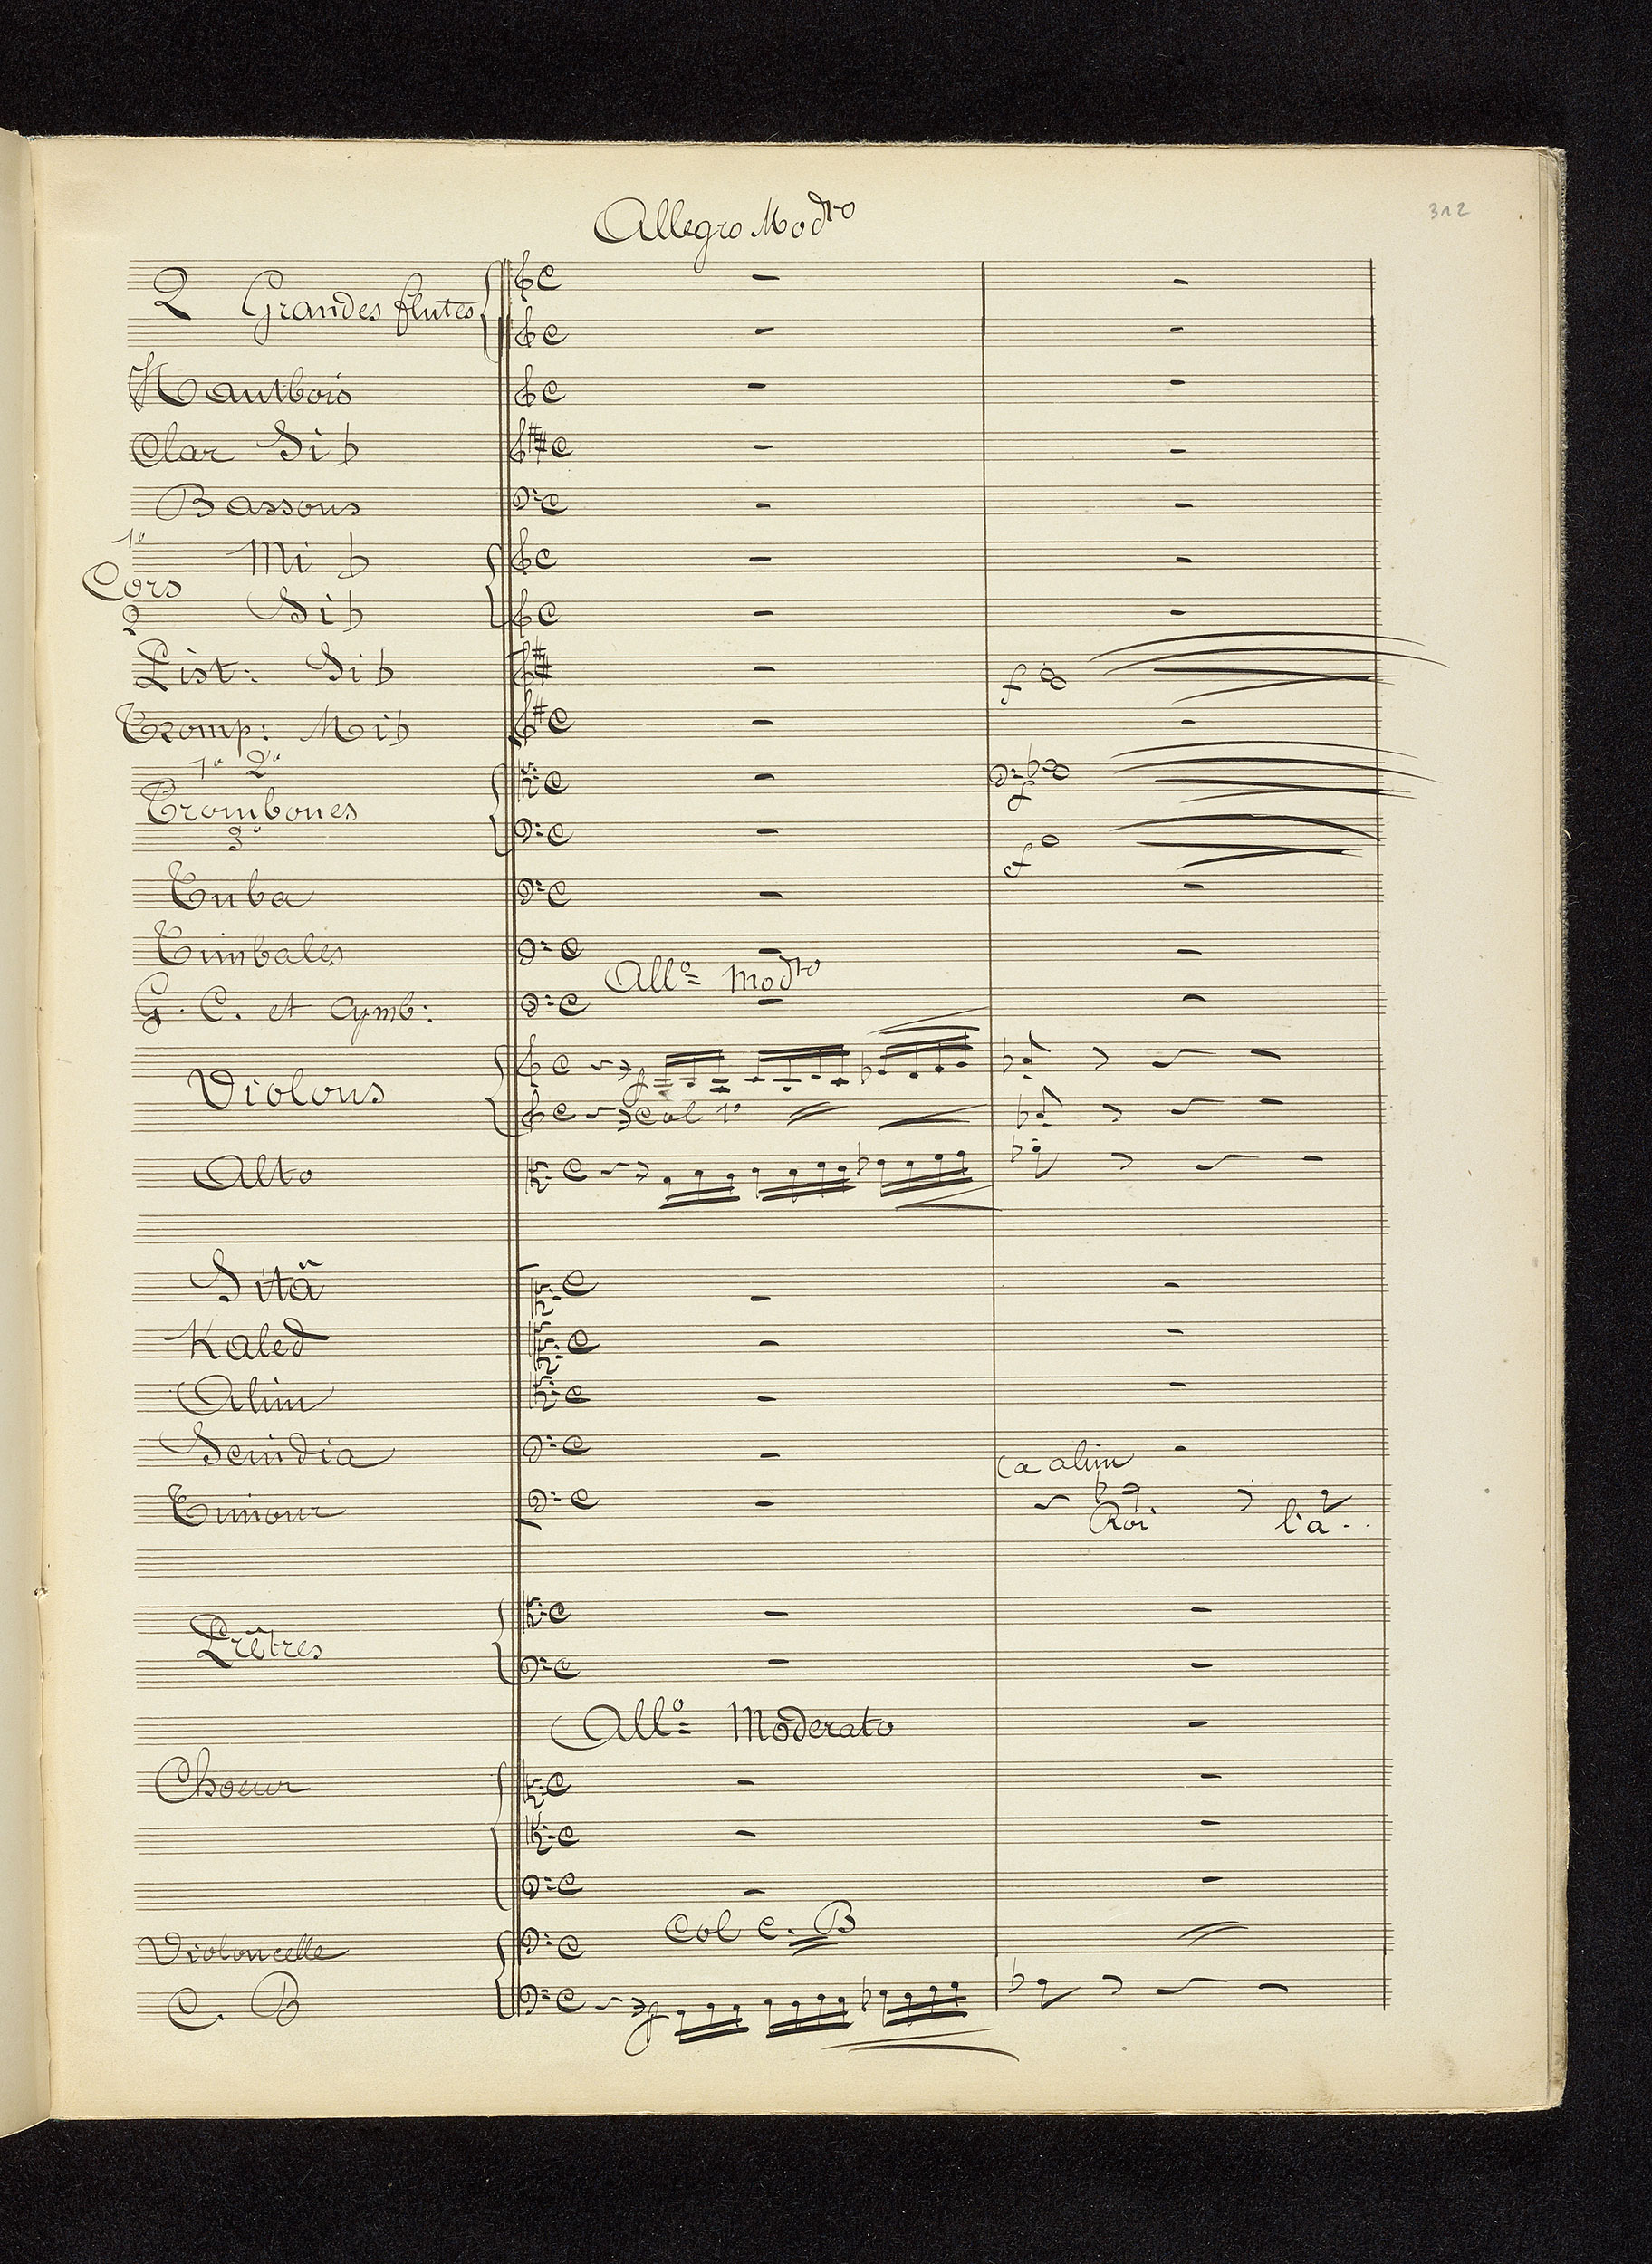 312
Allegro Modto
2 Grandes flutes
Hautbois
Clar Si b
Bassons
1o Mi b
Cors
2 Si b
Pist: Si b
f
Tromp: Mi b
1o 2o
f
Trombones
3o
f
Tuba
Timbales
Allo Modto
G. C. et Cymb:
Violons
f
Col 1o
Alto
Sitâ
Kaled
Alim
Scindia
(a alim
Timour
Roi l'a..
Prêtres
Allo Moderato
Choeur
Col C. B
Violoncelle
C. B
f